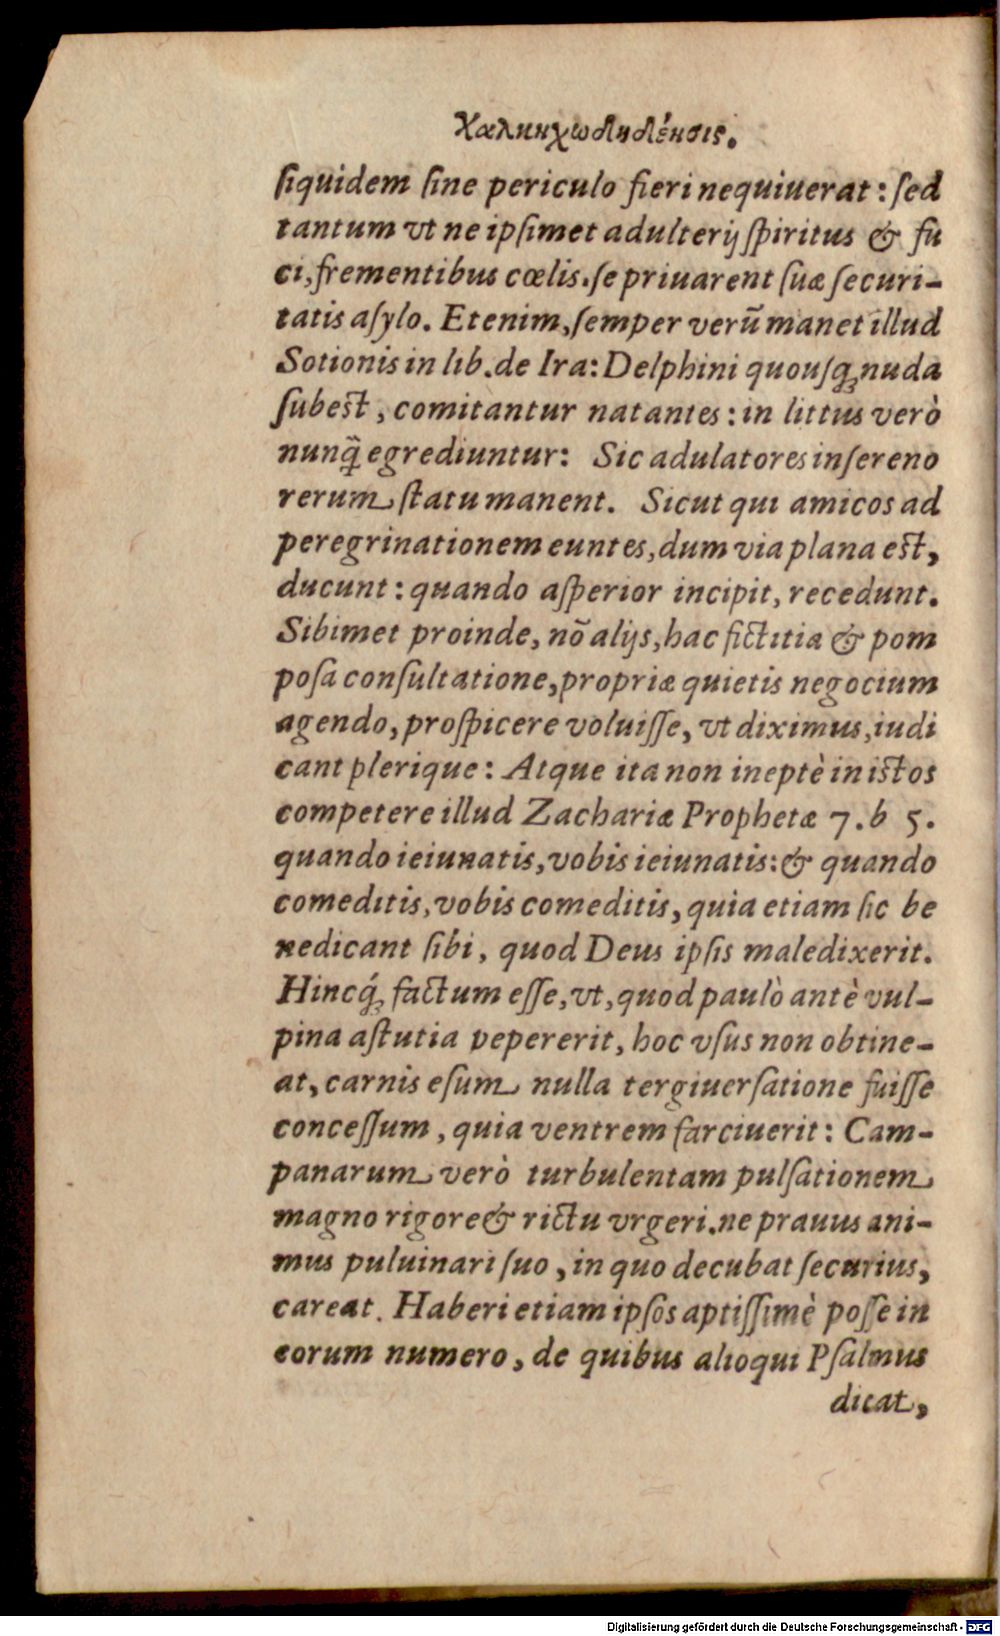 Χαλκηχωδηδένσις.
ſiquidem ſine periculo fieri nequiuerat: ſed
tantum vt ne ipſimet adulterij ſpiritus & fu
ci, frementibus cœlis. ſe priuarent ſuæ ſecuri-
tatis aſylo. Etenim, ſemper verū manet illud
Sotionis in lib. de Ira: Delphini quouſq; nuda
ſubest, comitantur natantes: in littus verò
nunq̃ egrediuntur: Sic adulatores in ſereno
rerum ſtatu manent. Sicut qui amicos ad
peregrinationem euntes, dum via plana est,
ducunt: quando aſperior incipit, recedunt.
Sibimet proinde, nō alijs, hac fictitia & pom
poſa conſultatione, propriæ quietis negocium
agendo, proſpicere voluiſſe, vt diximus, iudi
cant plerique: Atque ita non ineptè in istos
competere illud Zachariæ Prophetæ 7. b 5.
quando ieiunatis, vobis ieiunatis: & quando
comeditis, vobis comeditis, quia etiam ſic be
nedicant ſibi, quod Deus ipſis maledixerit.
Hincq́; factum eſſe, vt, quod paulò antè vul-
pina aſtutia pepererit, hoc vſus non obtine-
at, carnis eſum nulla tergiuerſatione fuiſſe
conceſſum, quia ventrem farciuerit: Cam-
panarum verò turbulentam pulſationem
magno rigore & rictu vrgeri. ne prauus ani-
mus puluinari ſuo, in quo decubat ſecurius,
careat. Haberi etiam ipſos aptiſſimè poſſe in
eorum numero, de quibus alioqui Pſalmus
dicat,
Digitalisierung gefördert durch die Deutsche Forschungsgemeinschaft - DFG